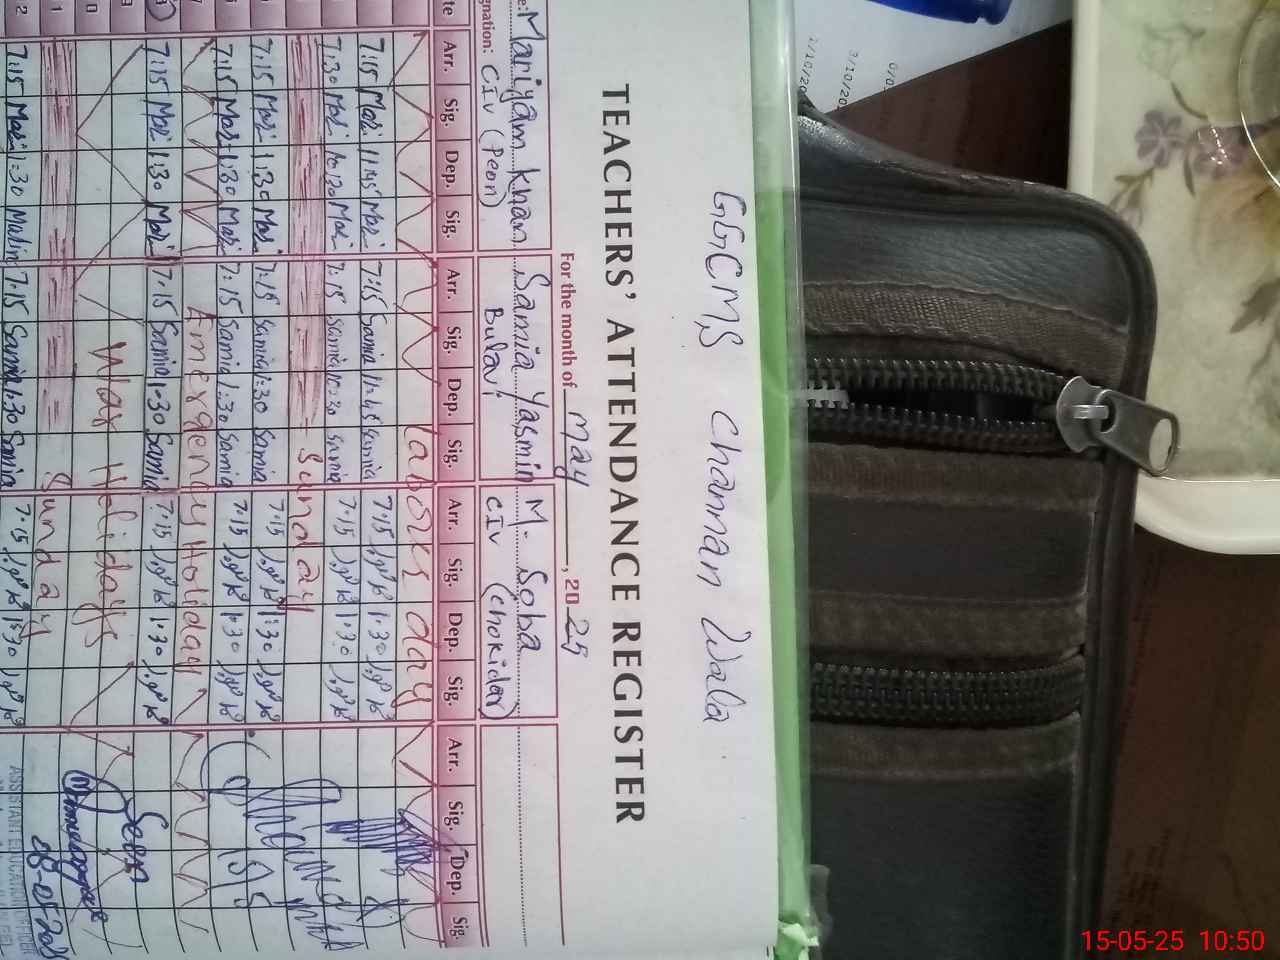 GGCMS Channan Wala
TEACHERS' ATTENDANCE REGISTER
For the month of May, 2025
Mariyam khan Samia Yasmin M. Soba
gnation: CIV (Peon) Bulavi CIV (chokidar)
te Arr. Sig. Dep. Sig. Arr. Sig. Dep. Sig. Arr. Sig. Dep. Sig. Arr. Sig. Dep. Sig.
labour day
7:15 Mari 11:45 Mari 7:15 Samia Samia 7:15 1:30
7:30 Mari 10:30 Mari 7:15 Samia 10:30 Samia 7:15 1:30
Sunday
7:15 Mari 1:30 Mari 7:15 Samia 1:30 Samia 7:15 1:30
7:15 Mari 1:30 Mari 7:15 Samia 1:30 Samia 7:15 1:30
7 Emergency Holiday
8 7:15 Mari 1:30 Mari 7:15 Samia 1:30 Samia 7:15 1:30
9 War Holidays
0
1 Sunday
2 7:15 Mari 1:30 7:15 Samia 1:30 Samia 7:15 1:30
Seen
08-05-2025
ASSISTANT EDUCATION OFFICER
0/0
3/10/20
1/10/20
15-05-25 10:50